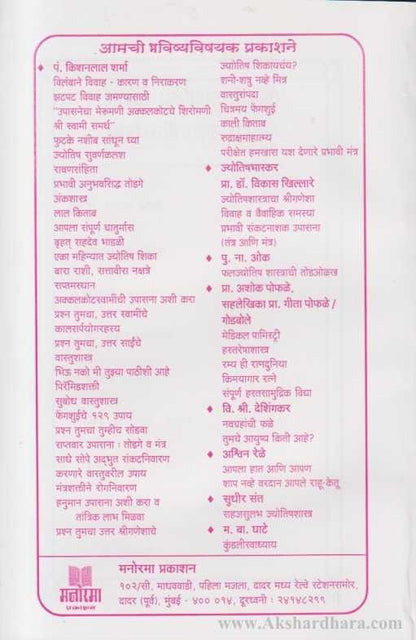 आमची भविष्यविषयक प्रकाशने
♦ पं. किशनलाल शर्मा
विलंबाने विवाह - कारण व निराकरण
झटपट विवाह जमण्यासाठी
"उपासनेचा मेरूमणी अक्कलकोटचे शिरोमणी
श्री स्वामी समर्थ"
फुटके नशीब सांधून घ्या
ज्योतिष सुवर्णकलश
रावणसंहिता
प्रभावी अनुभवसिद्ध तोडगे
अंकशास्त्र
लाल किताब
आपला संपूर्ण चातुर्मास
बृहत् सहदेव भाडळी
एका महिन्यात ज्योतिष शिका
बारा राशी, सत्तावीस नक्षत्रे
राप्तमरधान
अक्कलकोटस्वामींची उपासना अशी करा
प्रश्न तुमचा, उत्तर स्वामींचे
कालसर्पयोगरहस्य
प्रश्न तुमचा, उत्तर साईंचे
वास्तुशास्त्र
भिऊ नको मी तुझ्या पाठीशी आहे
पिरॅमिडशक्ती
सुबोध वास्तुशास्त्र
फेंगशुईचे १२९ उपाय
प्रश्न तुमचा तुम्हीच सोडवा
सप्तवार उपासना : तोडगे व मंत्र
साधे सोपे अद्भुत संकटनिवारण
करणारे वास्तुवरील उपाय
मंत्रशक्तीने रोगनिवारण
हनुमान उपासना अशी करा व
तांत्रिक लाभ मिळवा
प्रश्न तुमचा उत्तर श्रीगणेशाचे
ज्योतिष शिकायचंय?
शनी-शत्रु नव्हे मित्र
वास्तुसंपदा
चित्रमय फेंगशुई
काली किताब
रुद्राक्षमाहात्म्य
परीक्षेत हमखास यश देणारे प्रभावी मंत्र
♦ ज्योतिषभास्कर
प्रा. डॉ. विकास खिल्लारे
ज्योतिषशास्त्राचा श्रीगणेशा
विवाह व वैवाहिक समस्या
प्रभावी संकटनाशक उपासना
(तंत्र आणि मंत्र)
♦ पु. ना. ओक
फलज्योतिष शास्त्राची तोंडओळख
♦ प्रा. अशोक पोफळे,
सहलेखिका प्रा. गीता पोफळे /
गोडबोले
मेडिकल पामिस्ट्री
हस्तरेषाशास्त्र
रम्य ही रत्नदुनिया
किमयागार रत्ने
संपूर्ण हस्तसामुद्रिक विद्या
♦ वि. श्री. देशिंगकर
नवग्रहांची फळे
तुमचे आयुष्य किती आहे?
♦ अश्विन रेळे
आपला हात आणि आपण
शाप नव्हे वरदान आपले राहू-केतू
♦ सुधीर संत
सहजसुलभ ज्योतिषशास्त्र
♦ म. बा. घाटे
कुंडलीरवाध्याय
मनोरमा
प्रकाशन
मनोरमा प्रकाशन
१०२/सी, माधववाडी, पहिला मजला, दादर मध्य रेल्वे स्टेशनसमोर,
दादर (पूर्व), मुंबई - ४०० ०१४, दूरध्वनी : २४१४८२९९
www.Akshardhara.com